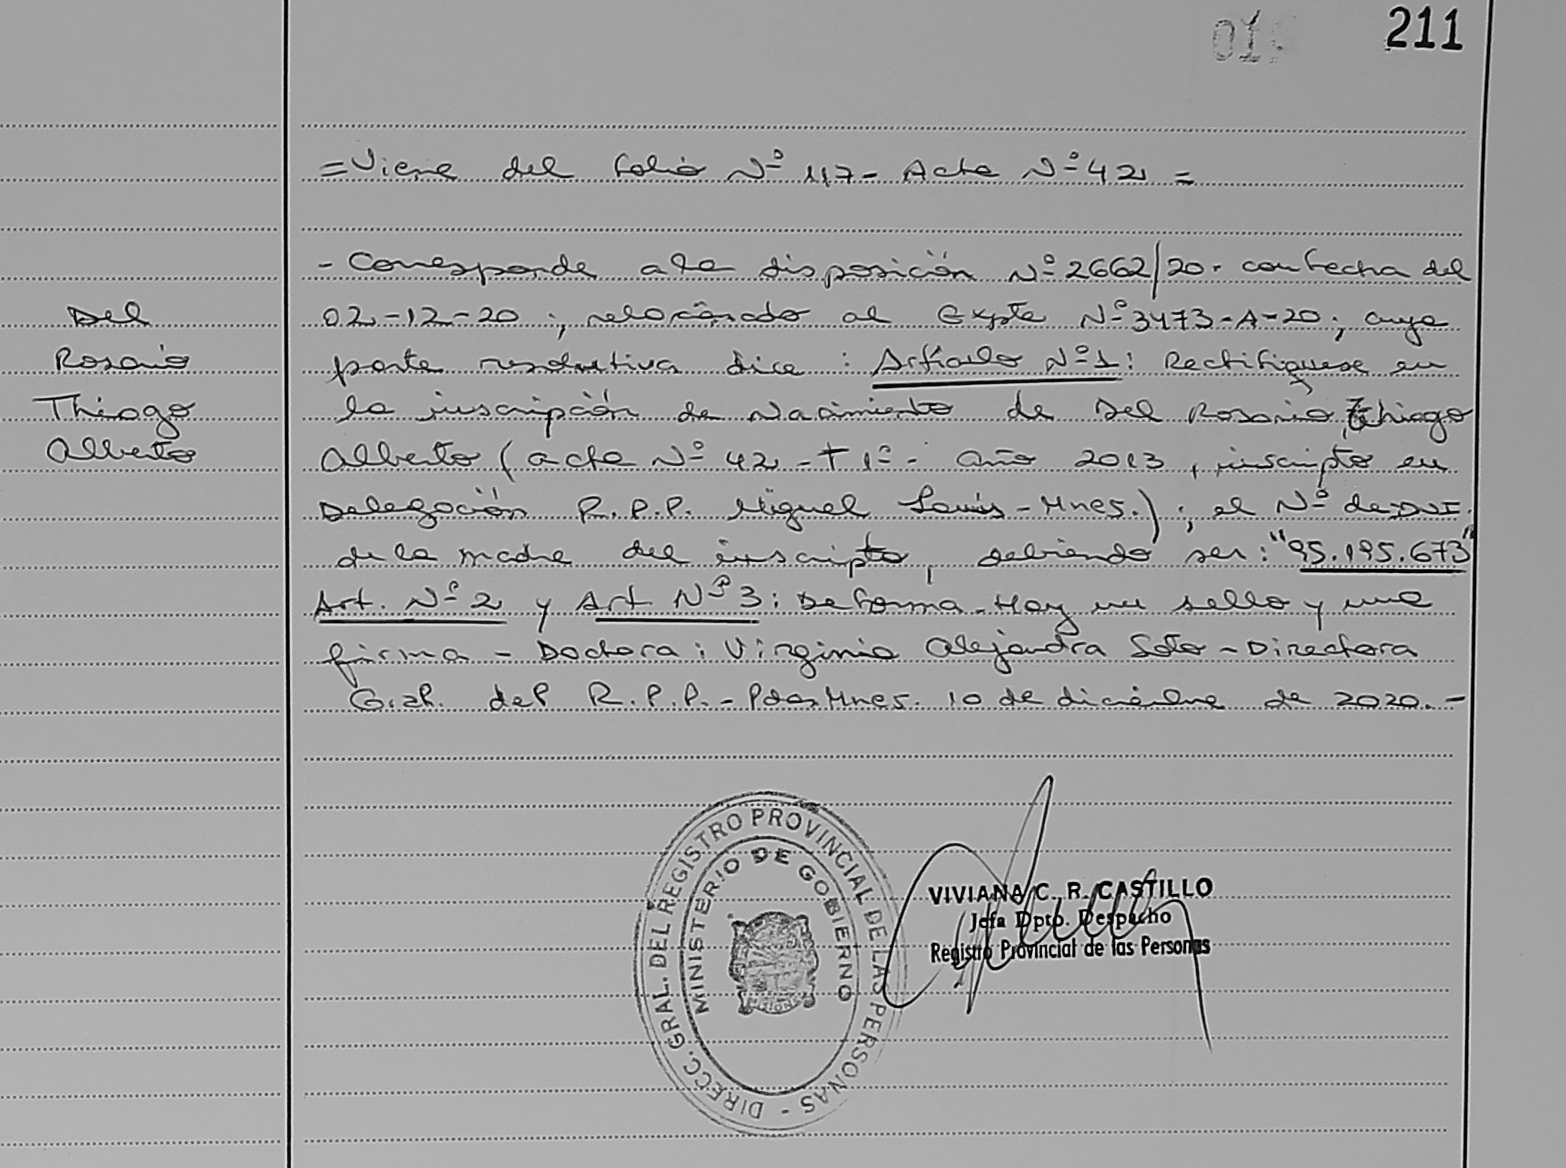 211
= Viene del folio Nº 117 - Acta Nº 42 =
- Corresponde a la disposición Nº 2662/20. con fecha del
Del
02-12-20 ; relacionado al Expte Nº 3473-A-20 ; cuya
Rosario
parte resolutiva dice : Artículo Nº 1 : Rectifíquese en
Thiago
la inscripción de Nacimiento de Del Rosario, Thiago
Alberto
Alberto ( acta Nº 42 - Tº 1º - año 2013 , inscripto en
Delegación R.P.P. Miguel Lanús - Mnes. ) ; el Nº de DNI.
de la madre del inscripto, debiendo ser : "95.195.673"
Art. Nº 2 y Art Nº 3 : De forma - Hay un sello y una
firma - Doctora : Virginia Alejandra Soto - Directora
Gral. del R.P.P. - Pdas Mnes. 10 de diciembre de 2020. -
DIRECC. GRAL. DEL REGISTRO PROVINCIAL DE LAS PERSONAS -
MINISTERIO DE GOBIERNO
VIVIANA C. R. CASTILLO
Jefa Dpto. Despacho
Registro Provincial de las Personas